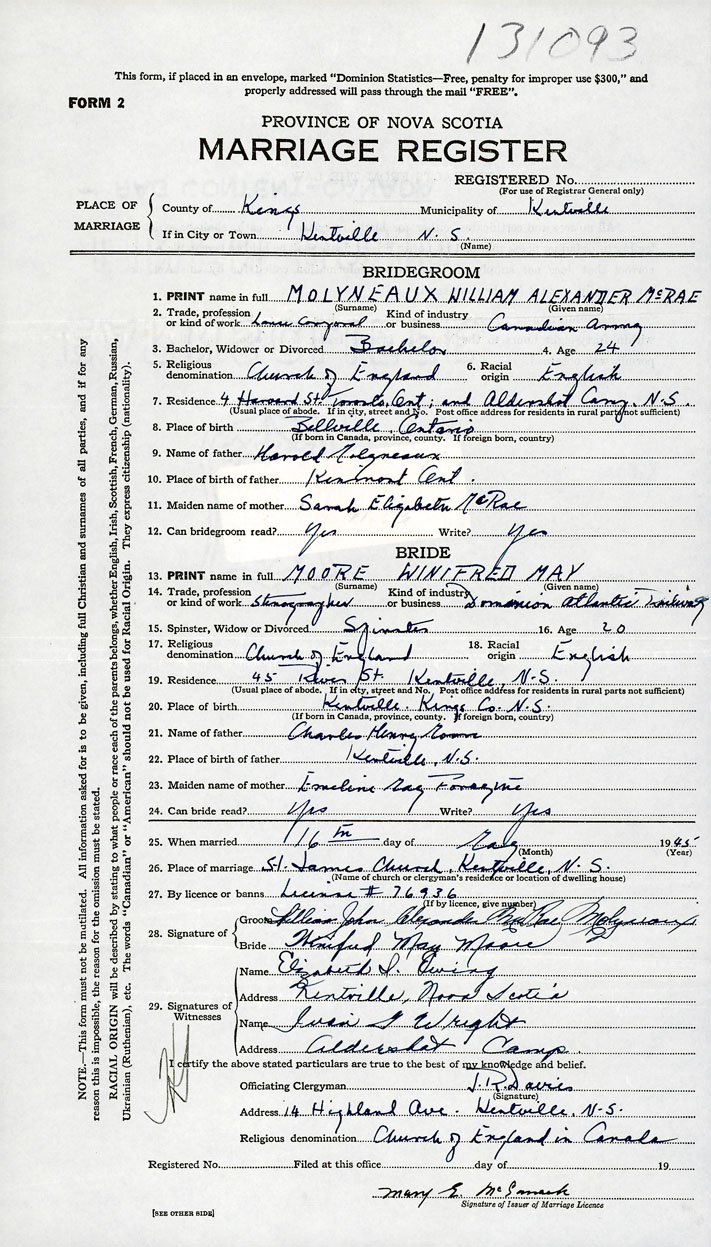 131093
This form, if placed in an envelope, marked "Dominion Statistics—Free, penalty for improper use $300," and
properly addressed will pass through the mail "FREE".
FORM 2
PROVINCE OF NOVA SCOTIA
MARRIAGE REGISTER
REGISTERED No.
(For use of Registrar General only)
PLACE OF MARRIAGE
County of Kings Municipality of Kentville
If in City or Town Kentville N. S.
(Name)
BRIDEGROOM
1. PRINT name in full MOLYNEAUX WILLIAM ALEXANDER McRAE
(Surname) (Given name)
2. Trade, profession or kind of work Lance Corporal Kind of industry or business Canadian Army
3. Bachelor, Widower or Divorced Bachelor 4. Age 24
5. Religious denomination Church of England 6. Racial origin English
7. Residence 4 Harvard St. Toronto, Ont; and Aldershot Camp, N.S.
(Usual place of abode. If in city, street and No. Post office address for residents in rural parts not sufficient)
8. Place of birth Bellville, Ontario
(If born in Canada, province, county. If foreign born, country)
9. Name of father Harold Molyneaux
10. Place of birth of father Kinmont Ont.
11. Maiden name of mother Sarah Elizabeth McRae
12. Can bridegroom read? Yes Write? Yes
BRIDE
13. PRINT name in full MOORE WINIFRED MAY
(Surname) (Given name)
14. Trade, profession or kind of work Stenographer Kind of industry or business Dominion Atlantic Railway
15. Spinster, Widow or Divorced Spinster 16. Age 20
17. Religious denomination Church of England 18. Racial origin English
19. Residence 45 River St. Kentville, N.S.
(Usual place of abode. If in city, street and No. Post office address for residents in rural parts not sufficient)
20. Place of birth Kentville Kings Co. N.S.
(If born in Canada, province, county. If foreign born, country)
21. Name of father Charles Henry Moore
22. Place of birth of father Kentville, N.S.
23. Maiden name of mother Emeline May
24. Can bride read? Yes Write? Yes
25. When married 16th day of May 1945
(Month) (Year)
26. Place of marriage St. James Church, Kentville, N. S.
(Name of church or clergyman's residence or location of dwelling house)
27. By licence or banns License # 76936
(If by licence, give number)
28. Signature of
Groom William John Alexander MacRae Molyneaux
Bride Winifred May Moore
29. Signatures of Witnesses
Name Elizabeth I. Ewing
Address Kentville, Nova Scotia
Name Ivan G Wright
Address Aldershot Camp.
I certify the above stated particulars are true to the best of my knowledge and belief.
Officiating Clergyman J.R. Davies
(Signature)
Address 14 Highland Ave. Kentville, N.S.
Religious denomination Church of England in Canada
Registered No. Filed at this office day of 19
Mary E.
Signature of Issuer of Marriage Licence
[SEE OTHER SIDE]
NOTE.—This form must not be mutilated. All information asked for is to be given, including full Christian and surnames of all parties, and if for any
reason this is impossible, the reason for the omission must be stated.
RACIAL ORIGIN will be described by stating to what people or race each of the parents belongs, whether English, Irish, Scottish, French, German, Russian,
Ukrainian (Ruthenian), etc. The words "Canadian" or "American" should not be used for Racial Origin. They express citizenship (nationality).